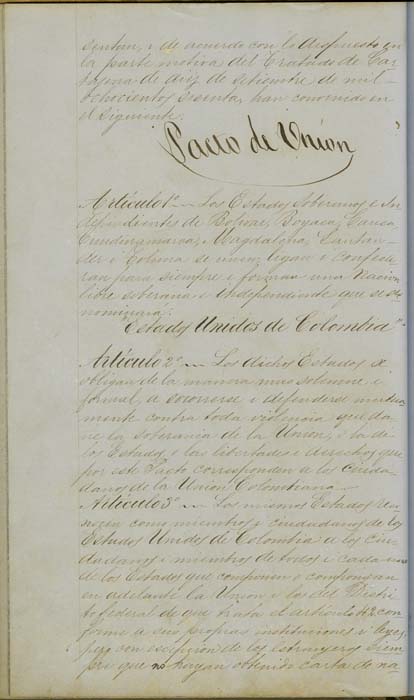 sentan, i de acuerdo con lo dispuesto en
la parte motiva del Tratado de Car-
tajena de diez de Setiembre de mil
ochocientos sesenta, han convenido en
el siguiente:
Pacto de Union
Artículo 1º — Los Estados Soberanos e In-
dependientes de Bolívar, Boyacá, Cauca,
Cundinamarca, Magdalena, Santan-
der i Tolima se unen, ligan i confede-
ran para siempre i forman una Nacion
libre soberana e independiente que se de-
nominará:
"Estados Unidos de Colombia"
Artículo 2º — Los dichos Estados se
obligan de la manera mas solemne i
formal, a socorrerse i defenderse mutua-
mente contra toda violencia que da-
ñe la soberanía de la Union, o la de
los Estados, o las libertades i derechos que
por este Pacto corresponden a los ciuda-
danos de la Union Colombiana.
Artículo 3º — Los mismos Estados reco-
nocen como miembros i ciudadanos de los
Estados Unidos de Colombia a los ciu-
dadanos i miembros de todos i cada uno
de los Estados que componen o compongan
en adelante la Union i los del Distri-
to federal de que trata el artículo 42 con-
forme a sus propias instituciones i leyes,
pero con escepcion de los estranjeros siem-
pre que no hayan obtenido carta de na-